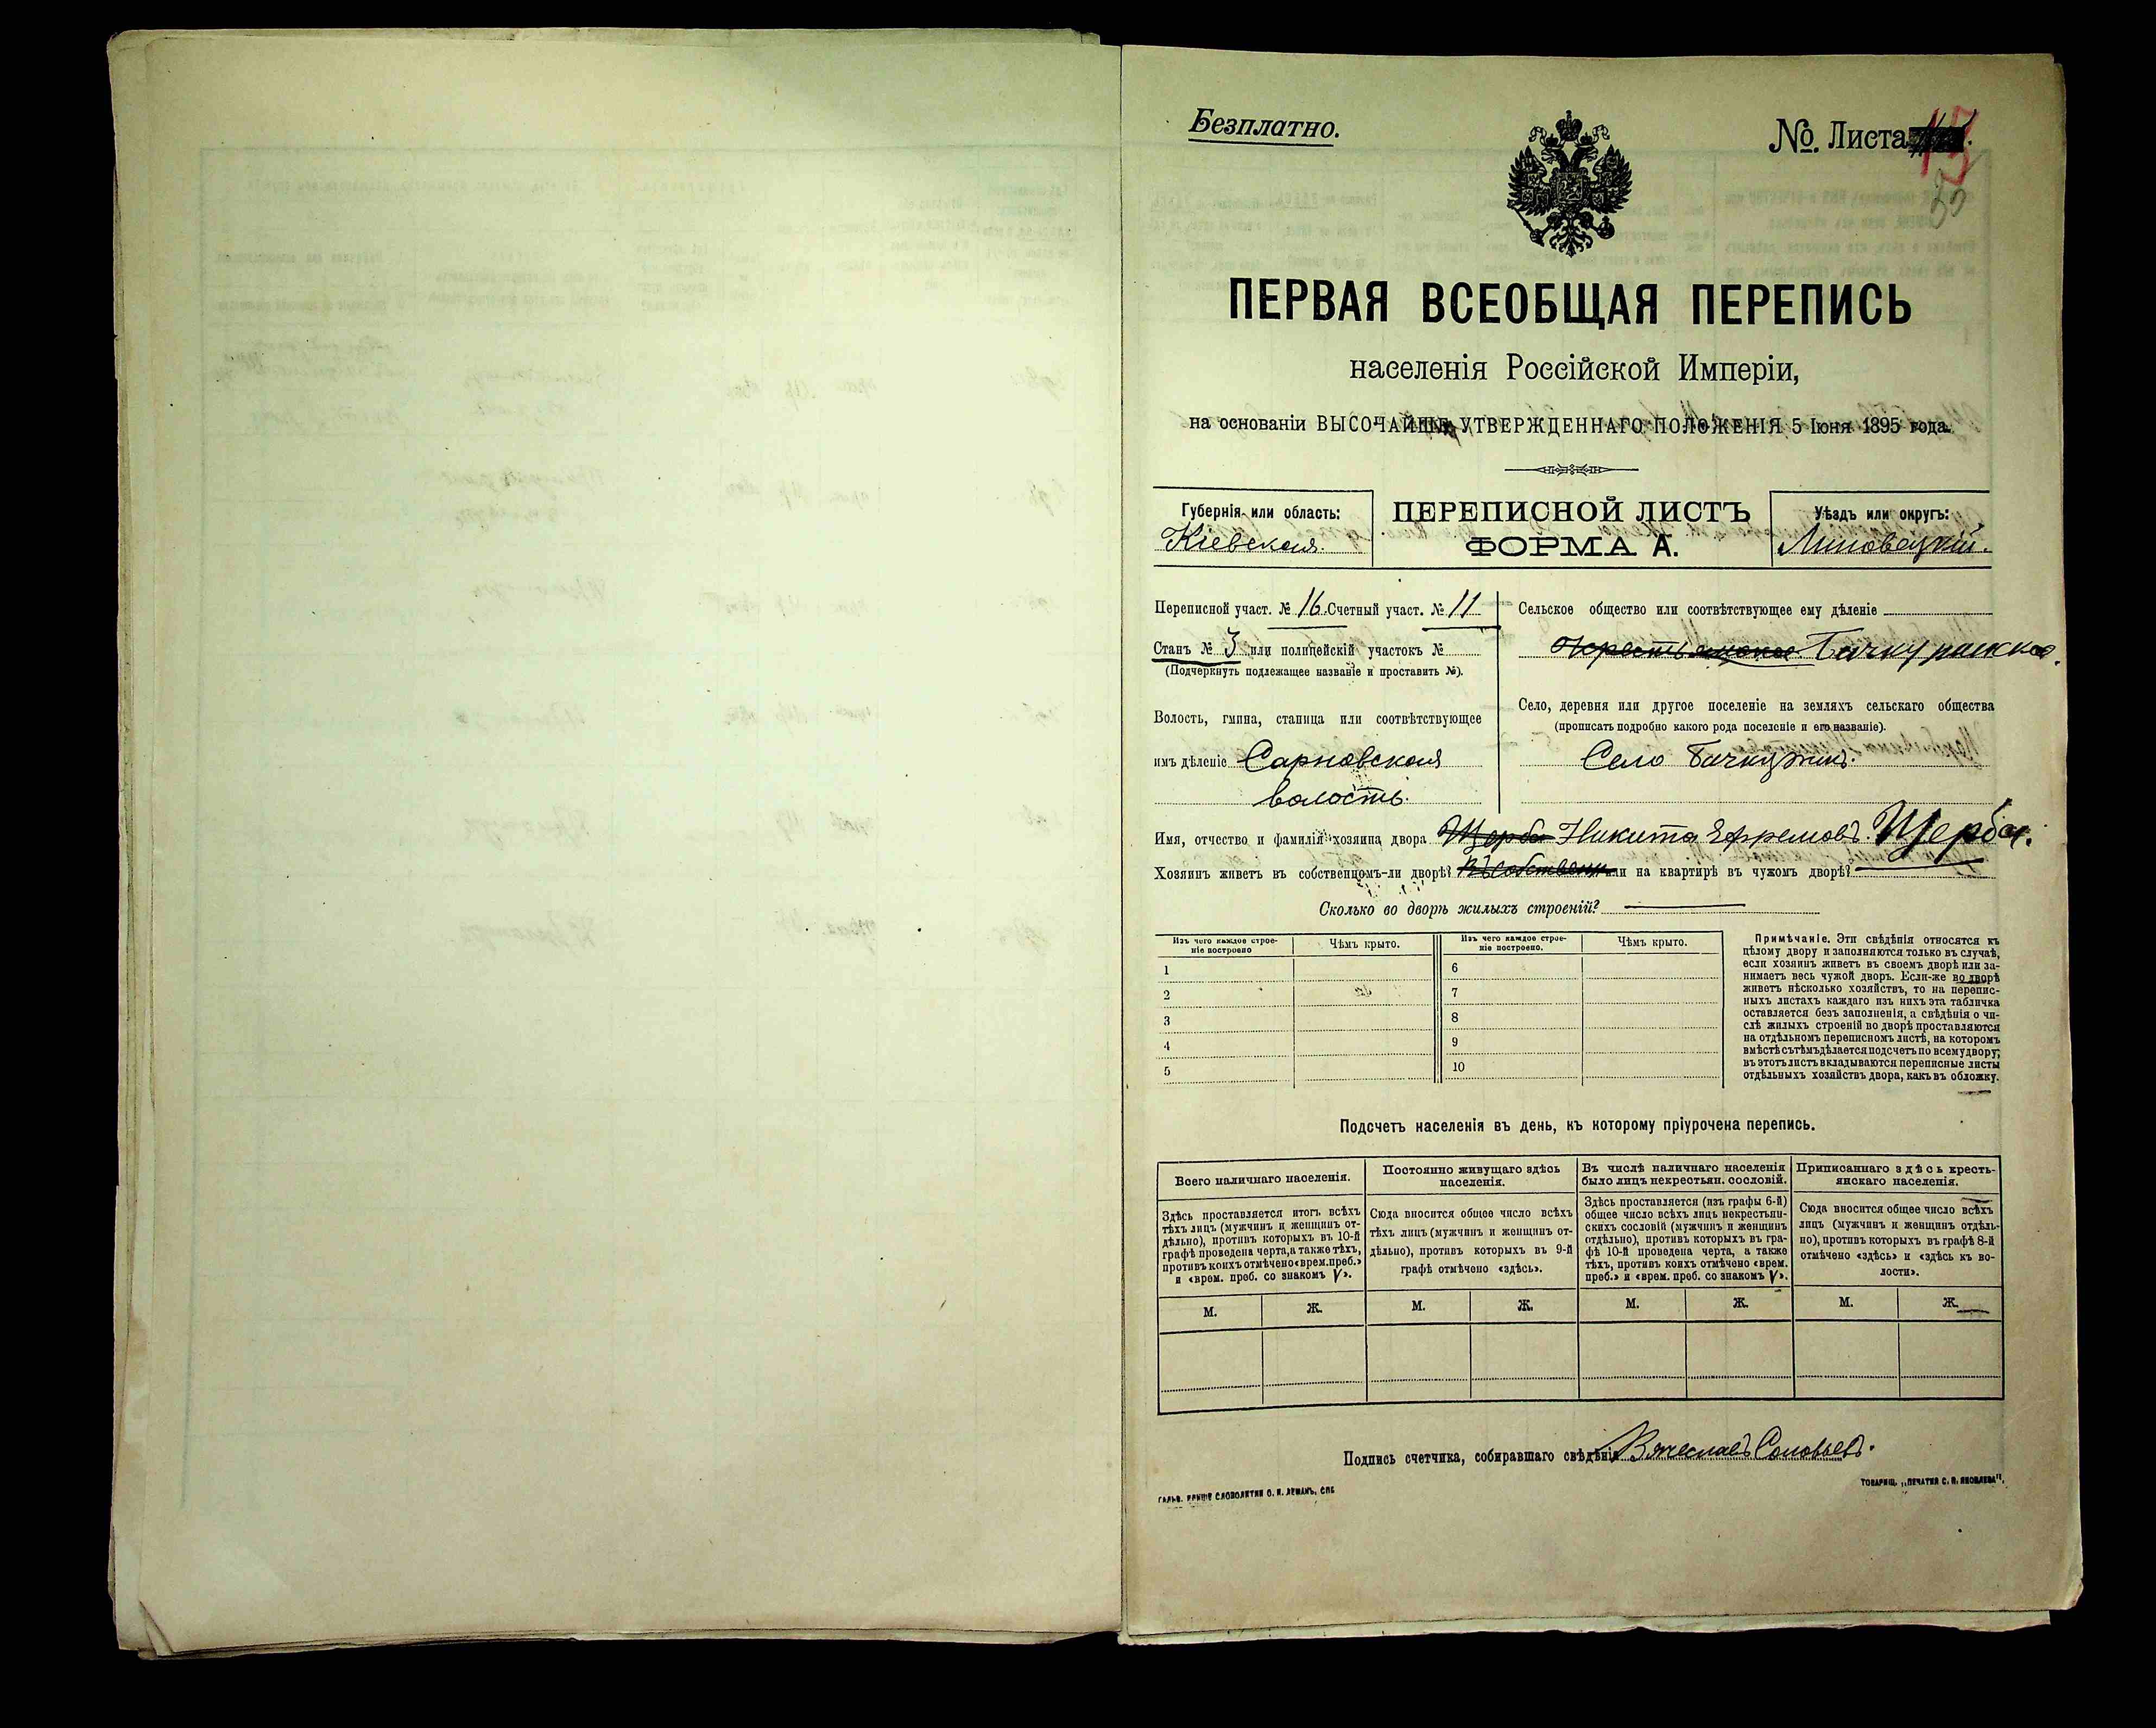 Безплатно.
№ Листа
ПЕРВАЯ ВСЕОБЩАЯ ПЕРЕПИСЬ
населенія Россійской Имперіи,
на основаніи ВЫСОЧАЙШЕ УТВЕРЖДЕННАГО ПОЛОЖЕНІЯ 5 Іюня 1895 года.
Губернія или область:
Кіевская.
ПЕРЕПИСНОЙ ЛИСТЪ
ФОРМА А.
Уѣздъ или округъ:
Липовецкій.
Переписной участ. № 16. Счетный участ. № 11
Станъ № 3 или полицейскій участокъ №
(Подчеркнуть подлежащее названіе и проставить №).
Волость, гмина, станица или соотвѣтствующее
имъ дѣленіе Сарновская
волость.
Сельское общество или соотвѣтствующее ему дѣленіе
Село, деревня или другое поселеніе на земляхъ сельскаго общества
(прописать подробно какого рода поселеніе и его названіе).
Село Бачкуринъ.
Имя, отчество и фамилія хозяина двора Щерба Никита Ефремовъ Щерба.
Хозяинъ живетъ въ собственномъ-ли дворѣ? Въ собственн или на квартирѣ въ чужомъ дворѣ?
Сколько во дворѣ жилыхъ строеній?
Изъ чего каждое строе-
ніе построено
Чѣмъ крыто.
Изъ чего каждое строе-
ніе построено.
Чѣмъ крыто.
1
6
2
7
3
8
4
9
5
10
Примѣчаніе. Эти свѣдѣнія относятся къ
цѣлому двору и заполняются только въ случаѣ,
если хозяинъ живетъ въ своемъ дворѣ или за-
нимаетъ весь чужой дворъ. Если-же во дворѣ
живетъ нѣсколько хозяйствъ, то на перепис-
ныхъ листахъ каждаго изъ нихъ эта табличка
оставляется безъ заполненія, а свѣдѣнія о чи-
слѣ жилыхъ строеній во дворѣ проставляются
на отдѣльномъ переписномъ листѣ, на которомъ
вмѣстѣ съ тѣмъ дѣлается подсчетъ по всему двору;
въ этотъ листъ вкладываются переписные листы
отдѣльныхъ хозяйствъ двора, какъ въ обложку.
Подсчетъ населенія въ день, къ которому пріурочена перепись.
Всего наличнаго населенія.
Здѣсь проставляется итогъ всѣхъ
тѣхъ лицъ (мужчинъ и женщинъ от-
дѣльно), противъ которыхъ въ 10-й
графѣ проведена черта, а также тѣхъ,
противъ коихъ отмѣчено «врем. преб.»
и «врем. преб. со знакомъ V».
Постоянно живущаго здѣсь
населенія.
Сюда вносится общее число всѣхъ
тѣхъ лицъ (мужчинъ и женщинъ от-
дѣльно), противъ которыхъ въ 9-й
графѣ отмѣчено «здѣсь».
Въ числѣ наличнаго населенія
было лицъ некрестьян. сословій.
Здѣсь проставляется (изъ графы 6-й)
общее число всѣхъ лицъ некрестьян-
скихъ сословій (мужчинъ и женщинъ
отдѣльно), противъ которыхъ въ гра-
фѣ 10-й проведена черта, а также
тѣхъ, противъ коихъ отмѣчено «врем.
преб.» и «врем. преб. со знакомъ V».
Приписаннаго здѣсь кресть-
янскаго населенія.
Сюда вносится общее число всѣхъ
лицъ (мужчинъ и женщинъ отдѣль-
но), противъ которыхъ въ графѣ 8-й
отмѣчено «здѣсь» и «здѣсь къ во-
лости».
М. Ж. М. Ж. М. Ж. М. Ж.
Подпись счетчика, собиравшаго свѣдѣнія Вячеславъ Соловьевъ.
ТОВАРИЩ. „ПЕЧАТНЯ С. П. ЯКОВЛЕВА".